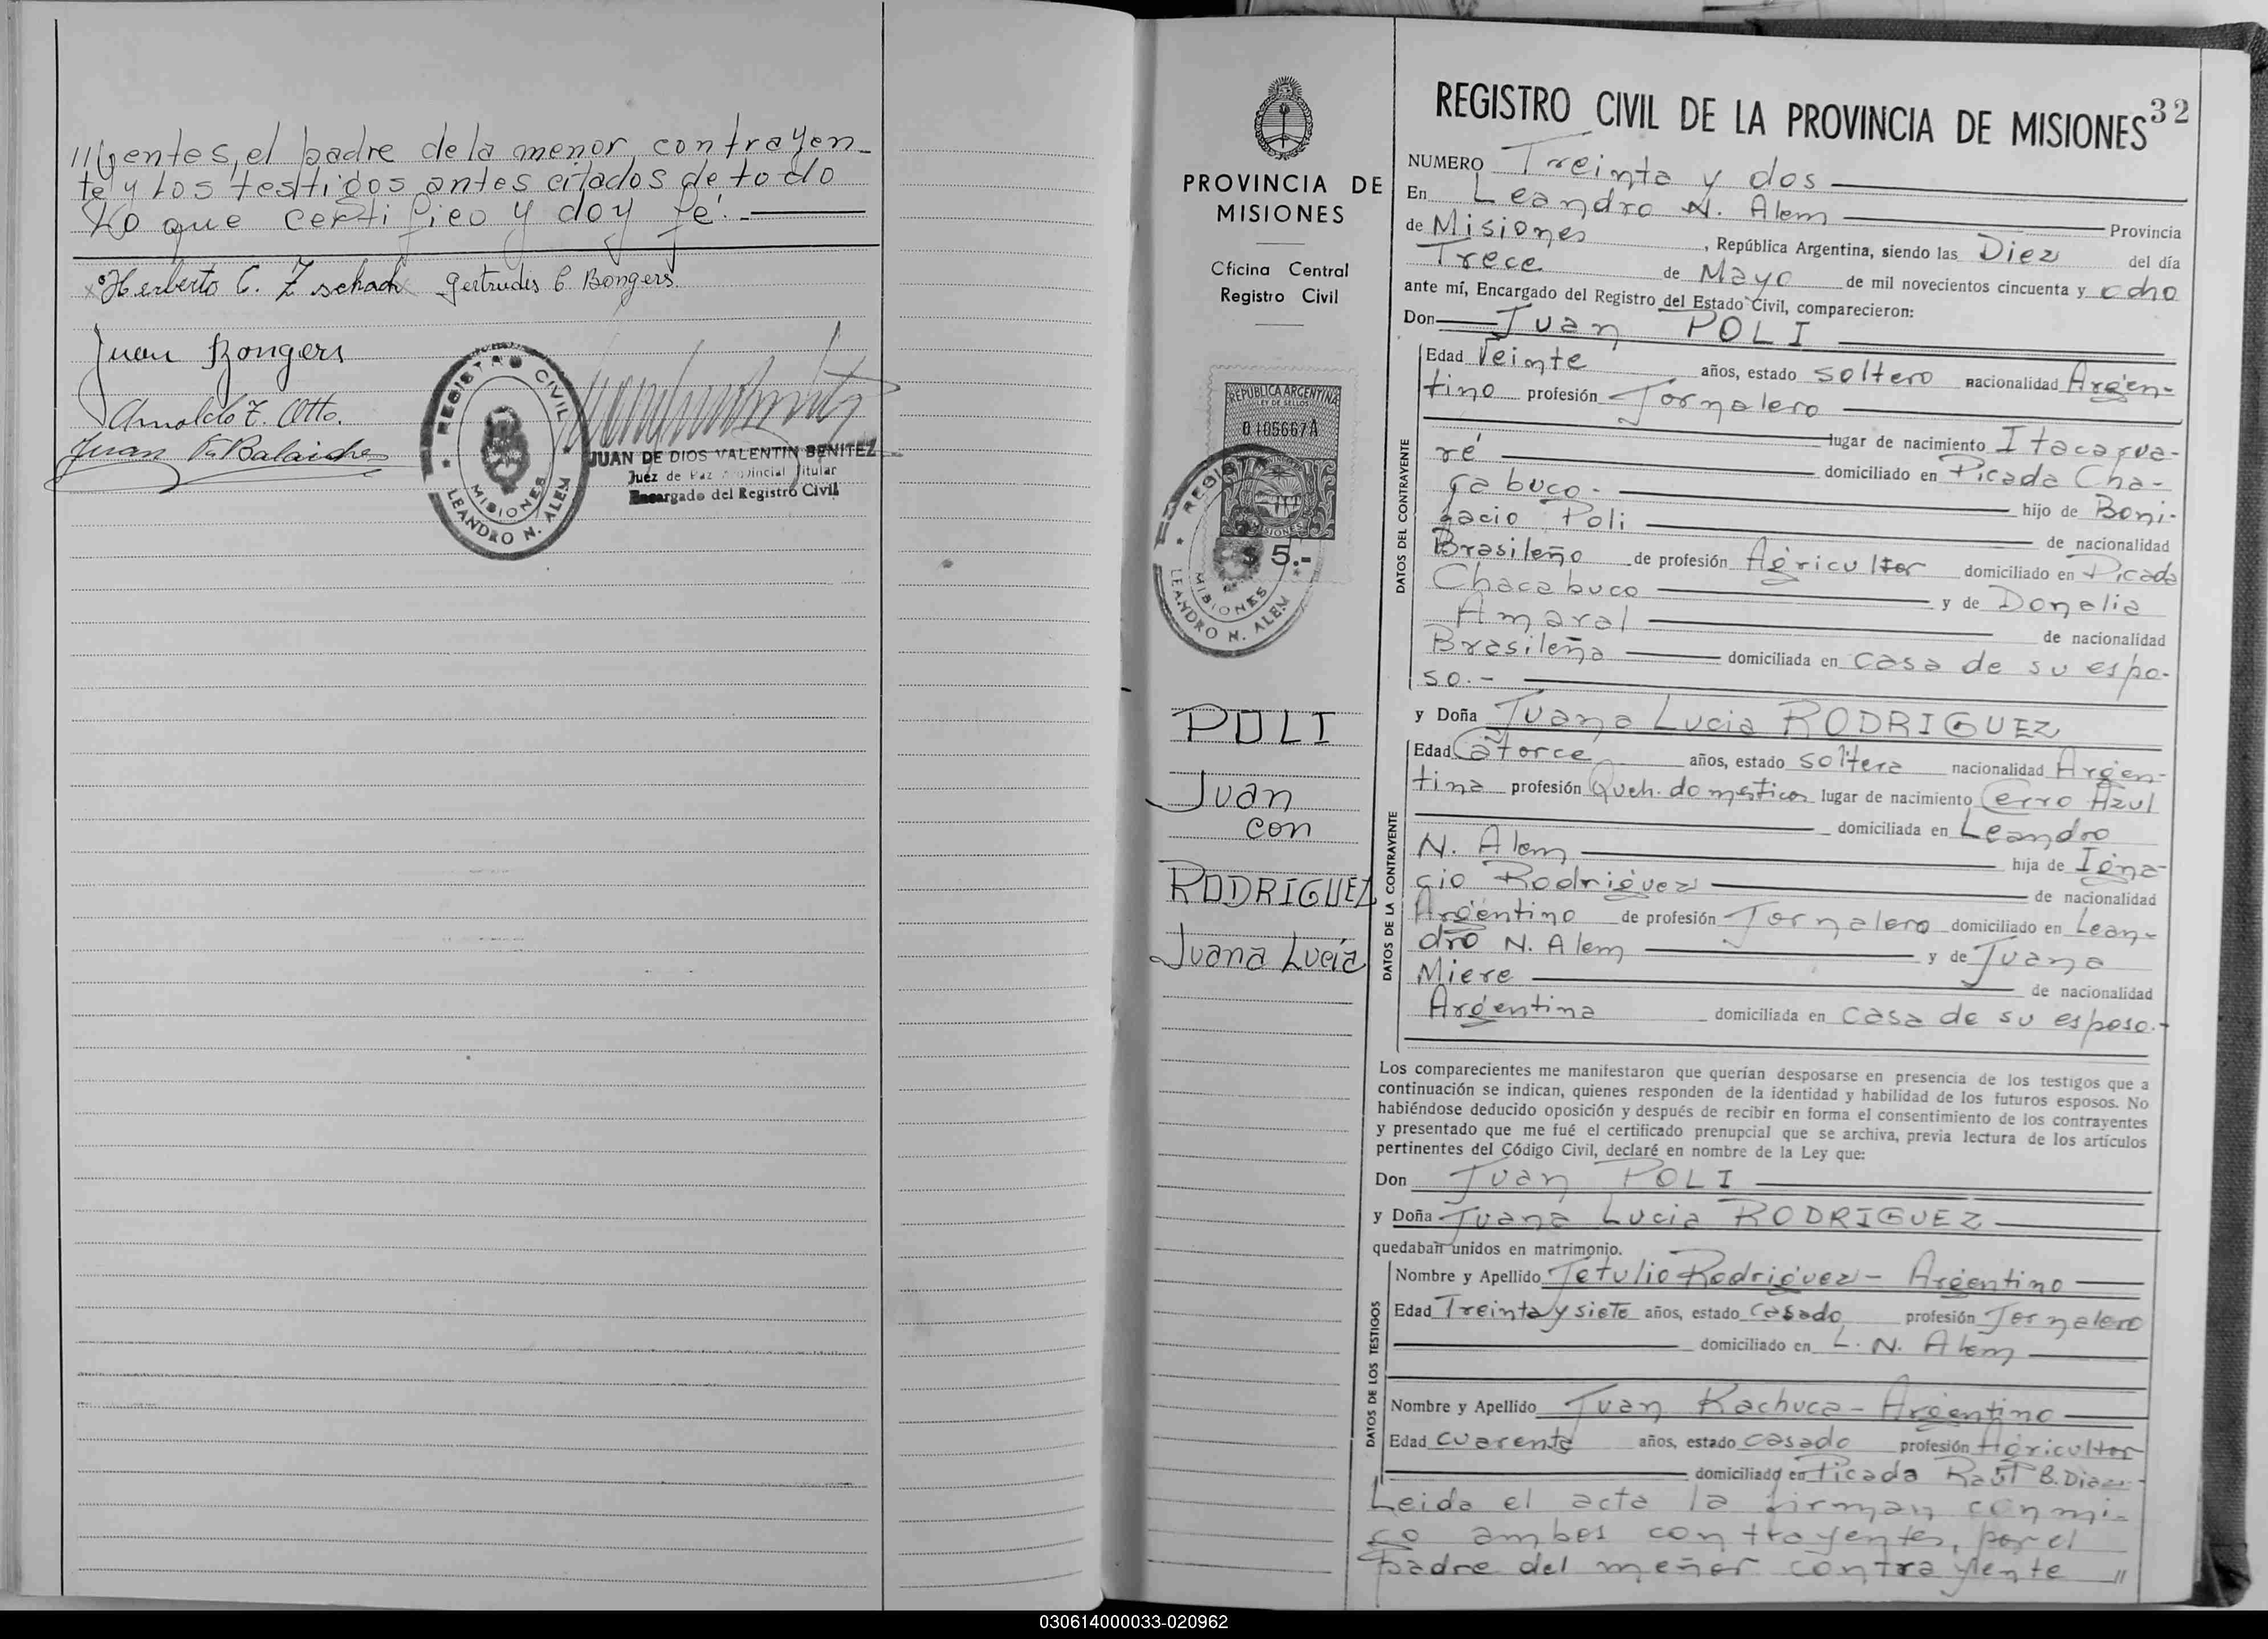 //yentes, el padre de la menor contrayen-
te y los testigos antes citados de todo
lo que certifico y doy fé.-
Herberto C. Zschach Gertrudis C. Bongers
Juan Bongers
Arnoldo E. Otto.
Juan
REGISTRO CIVIL
MISIONES
LEANDRO N. ALEM
JUAN DE DIOS VALENTIN BENITEZ
Juez de Paz Provincial Titular
Encargado del Registro Civil
PROVINCIA DE
MISIONES
Oficina Central
Registro Civil
REPUBLICA ARGENTINA
LEY DE SELLOS
0105667A
MISIONES
$ 5.-
MISIONES
LEANDRO N. ALEM
POLI
Juan
con
RODRIGUEZ
Juana Lucía
REGISTRO CIVIL DE LA PROVINCIA DE MISIONES 32
NUMERO Treinta y dos
En Leandro N. Alem Provincia
de Misiones, República Argentina, siendo las Diez del día
Trece de Mayo de mil novecientos cincuenta y ocho
ante mí, Encargado del Registro del Estado Civil, comparecieron:
Don Juan POLI
DATOS DEL CONTRAYENTE
Edad Veinte años, estado soltero nacionalidad Argen-
tino profesión Jornalero
lugar de nacimiento Itacarua-
ré domiciliado en Picada Cha-
cabuco.- hijo de Boni-
facio Poli de nacionalidad
Brasileño de profesión Agricultor domiciliado en Picada
Chacabuco y de Donalia
Amaral de nacionalidad
Brasileña domiciliada en casa de su espo-
so.-
y Doña Juana Lucia RODRIGUEZ
DATOS DE LA CONTRAYENTE
Edad Catorce años, estado soltera nacionalidad Argen-
tina profesión Queh. domésticos lugar de nacimiento Cerro Azul
domiciliada en Leandro
N. Alem hija de Igna-
cio Rodriguez de nacionalidad
Argentino de profesión Jornalero domiciliado en Lean-
dro N. Alem y de Juana
Miere de nacionalidad
Argentina domiciliada en casa de su esposo.-
Los comparecientes me manifestaron que querían desposarse en presencia de los testigos que a
continuación se indican, quienes responden de la identidad y habilidad de los futuros esposos. No
habiéndose deducido oposición y después de recibir en forma el consentimiento de los contrayentes
y presentado que me fué el certificado prenupcial que se archiva, previa lectura de los artículos
pertinentes del Código Civil, declaré en nombre de la Ley que:
Don Juan POLI
y Doña Juana Lucia RODRIGUEZ
quedaban unidos en matrimonio.
DATOS DE LOS TESTIGOS
Nombre y Apellido Jetulio Rodriguez - Argentino
Edad Treinta y siete años, estado casado profesión Jornalero
domiciliado en L. N. Alem
Nombre y Apellido Juan Kachuca - Argentino
Edad cuarenta años, estado casado profesión Agricultor
domiciliado en Picada Raúl B. Diaz.-
Leida el acta la firman conmi-
go ambos contrayentes, por el
padre del menor contrayente //
030614000033-020962